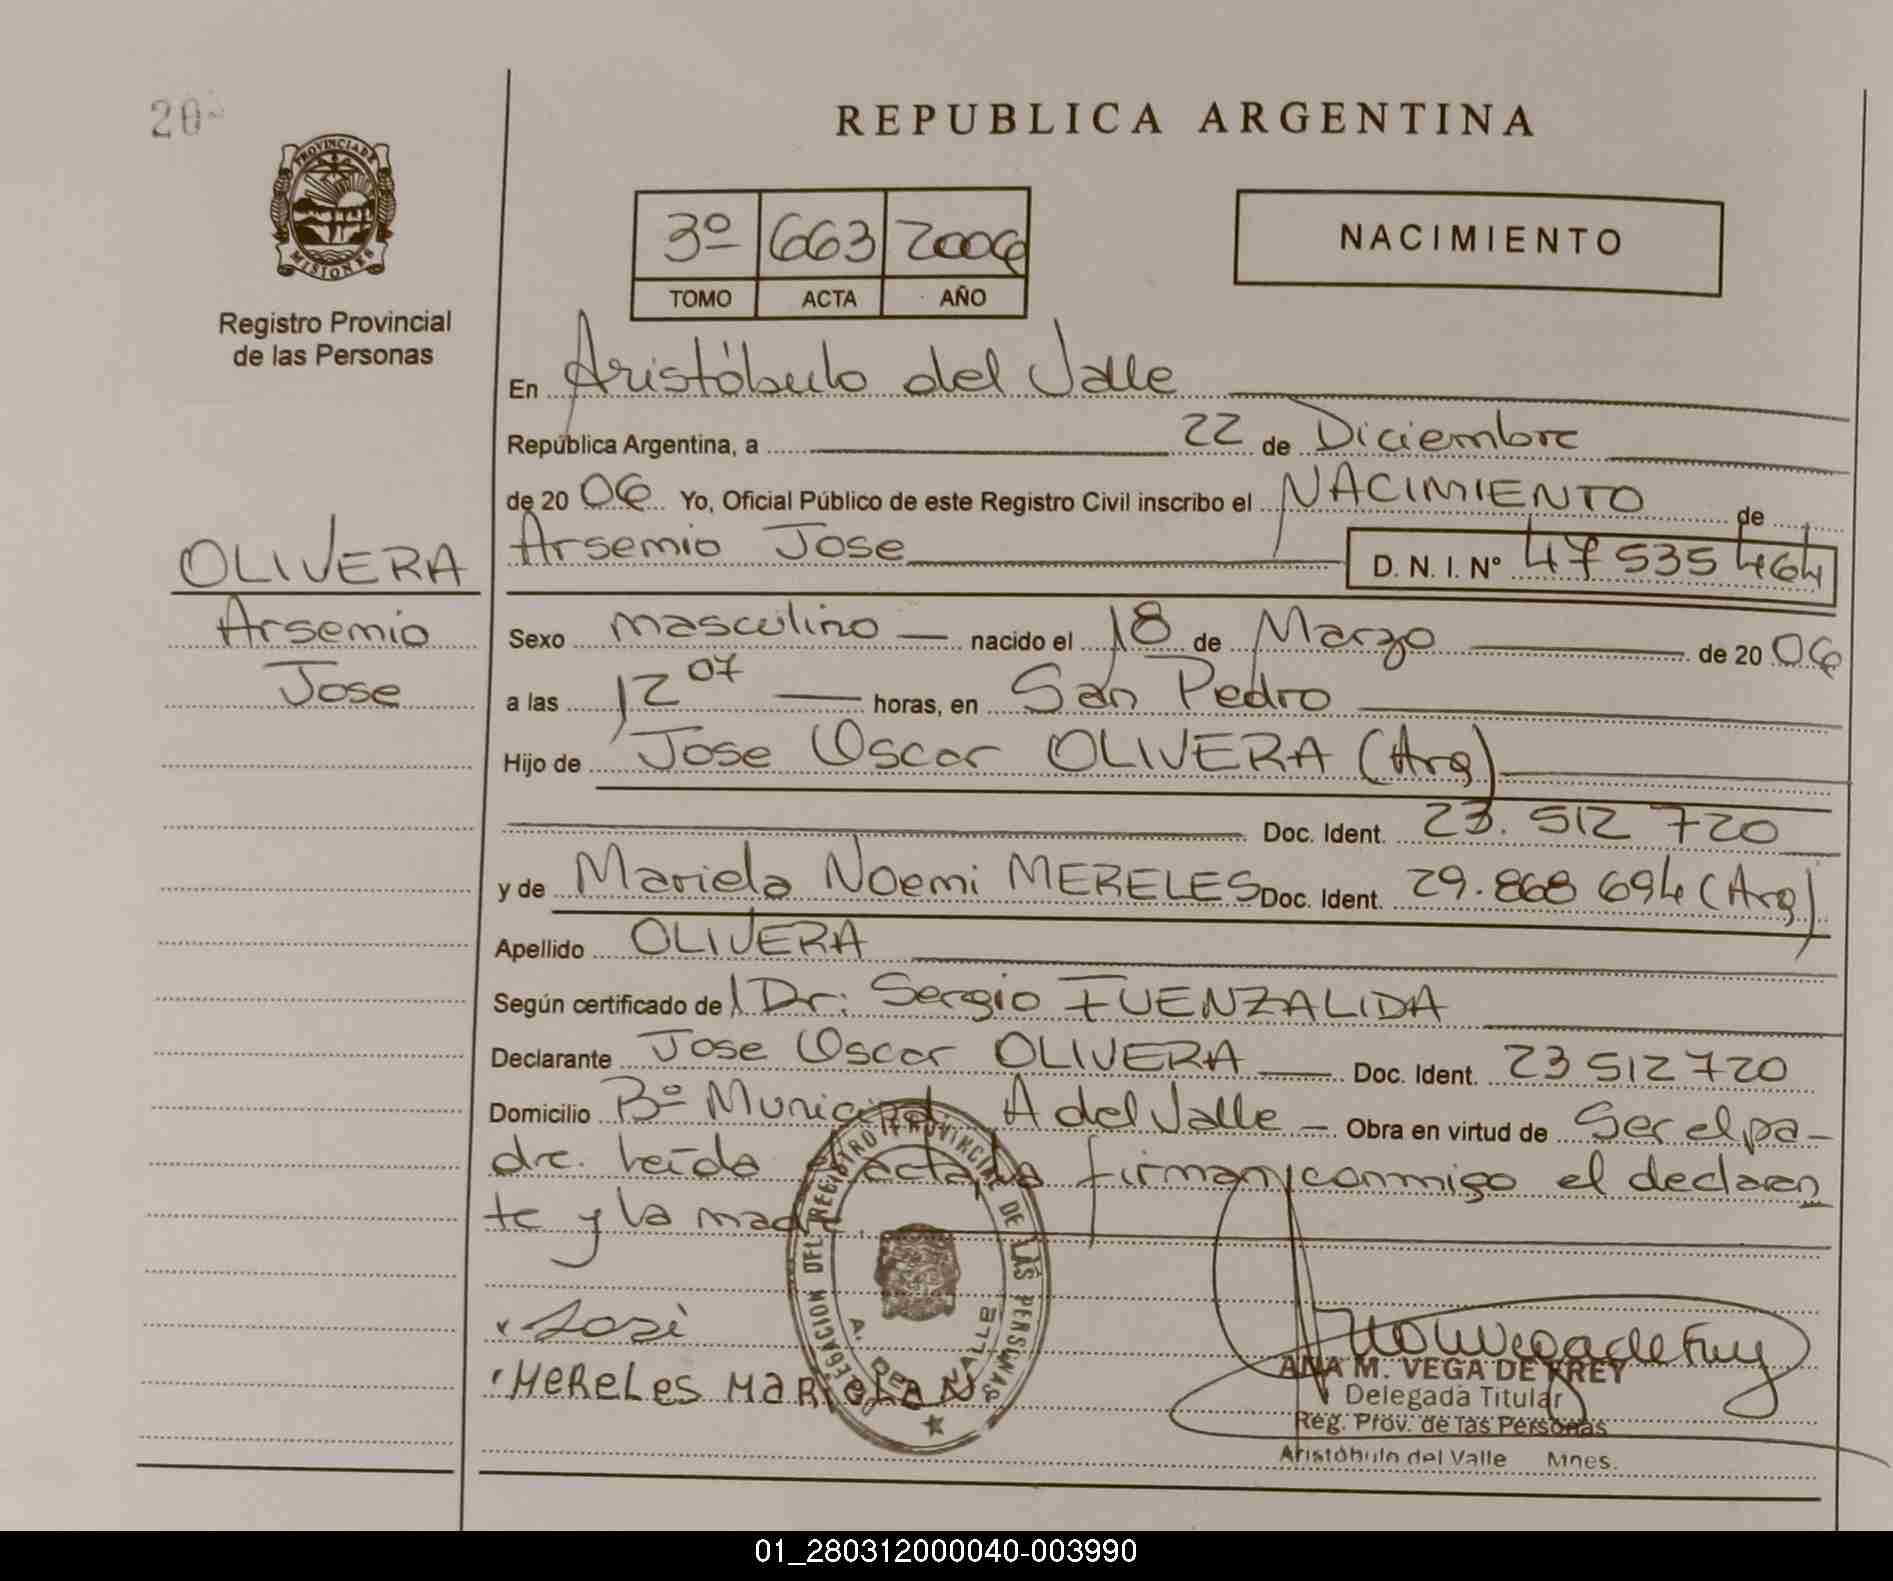 20
REPUBLICA ARGENTINA
PROVINCIA DE
MISIONES
Registro Provincial
de las Personas
3º 663 2006
TOMO ACTA AÑO
NACIMIENTO
En Aristóbulo del Valle
República Argentina, a 22 de Diciembre
de 20 06 Yo, Oficial Público de este Registro Civil inscribo el NACIMIENTO de
OLIVERA
Arsemio Jose
Arsemio Jose D. N. I. Nº 47535464
Sexo masculino nacido el 18 de Marzo de 20 06
a las 12 07 horas, en San Pedro
Hijo de Jose Oscar OLIVERA (Arg)
Doc. Ident. 23.512 720
y de Mariela Noemi MERELES Doc. Ident. 29.868 694 (Arg)
Apellido OLIVERA
Según certificado de Dr: Sergio FUENZALIDA
Declarante Jose Oscar OLIVERA Doc. Ident. 23 512 720
Domicilio Bº Municipal A del Valle – Obra en virtud de Ser el pa-
dre. Leída el acta, la firman conmigo el declaran
te y la madre.
DELEGACION DEL REGISTRO PROVINCIAL DE LAS PERSONAS
A. DEL VALLE
José
MERELES MARIELA N
ANA M. VEGA DE FREY
Delegada Titular
Reg. Prov. de las Personas
Aristóbulo del Valle Mnes.
01_280312000040-003990